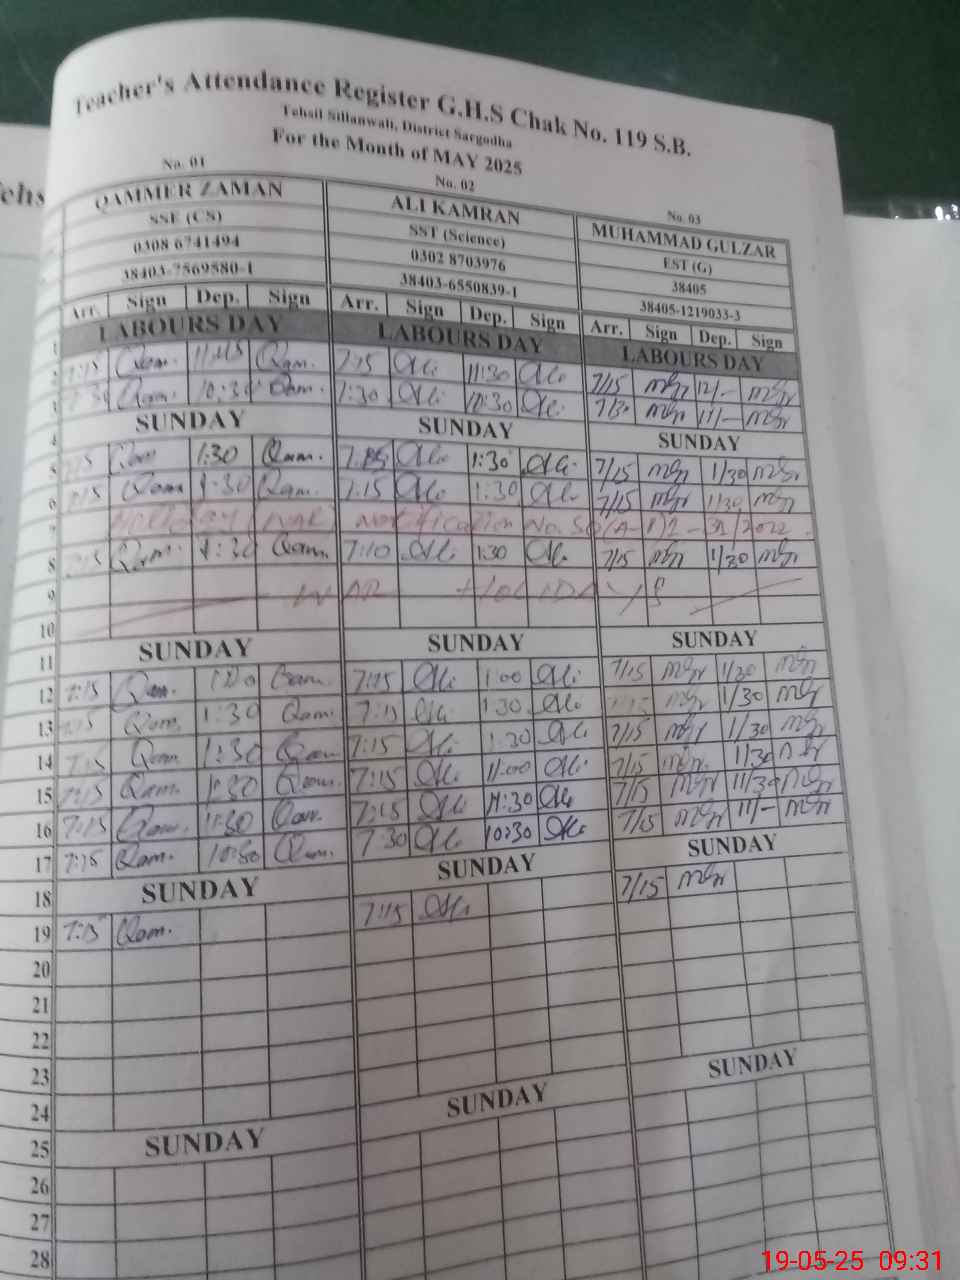 ehs
Teacher's Attendance Register G.H.S Chak No. 119 S.B.
Tehsil Sillanwali, District Sargodha
For the Month of MAY 2025
No. 01 No. 02 No. 03
QAMMER ZAMAN ALI KAMRAN MUHAMMAD GULZAR
SSE (CS) SST (Science) EST (G)
0308 6741494 0302 8703976 38405
38403-7569580-1 38403-6550839-1 38405-1219033-3
Arr. Sign Dep. Sign Arr. Sign Dep. Sign Arr. Sign Dep. Sign
1 LABOURS DAY LABOURS DAY LABOURS DAY
2 7:15 Qam. Qam. 7:15 Ali 11:30 Ali 7/15 12/-
3 Qam. 10:30 Qam. 7:30 Ali 10:30 Ali 11/-
4 SUNDAY SUNDAY SUNDAY
5 Qam 1:30 Qam. 7:15 Ali 1:30 Ali 7/15 1/30
6 7:15 Qam 1:30 Qam. 7:15 Ali 1:30 Ali 7/15 1/30
7 Holiday (War Notification No. SO(A-1)1-31/2022.
8 7:15 Qam. 1:30 Qam. 7:10 Ali 1:30 Ali 7/15 1/30
9 WAR HOLIDAYS
10
11 SUNDAY SUNDAY SUNDAY
12 7:15 Qam. Qam. 7:15 Ali 1:00 Ali 7/15 1/30
13 7:15 Qam. 1:30 Qam. 7:15 Ali 1:30 Ali 1/30
14 7:15 Qam. 1:30 Qam 7:15 Ali 1:30 Ali 7/15 1/30
15 7:15 Qam. 1:30 Qam. 7:15 Ali 11:00 Ali 7/15 11/30
16 7:15 Qam. 11:30 Qam. 7:15 Ali 11:30 Ali 7/15 11/30
17 7:15 Qam. 10:30 Qam. 7:30 Ali 10:30 Ali 7/15 11/-
18 SUNDAY SUNDAY SUNDAY
19 7:15 Qam. 7:15 Ali 7/15
20
21
22
23
24
25 SUNDAY SUNDAY SUNDAY
26
27
28
19-05-25 09:31